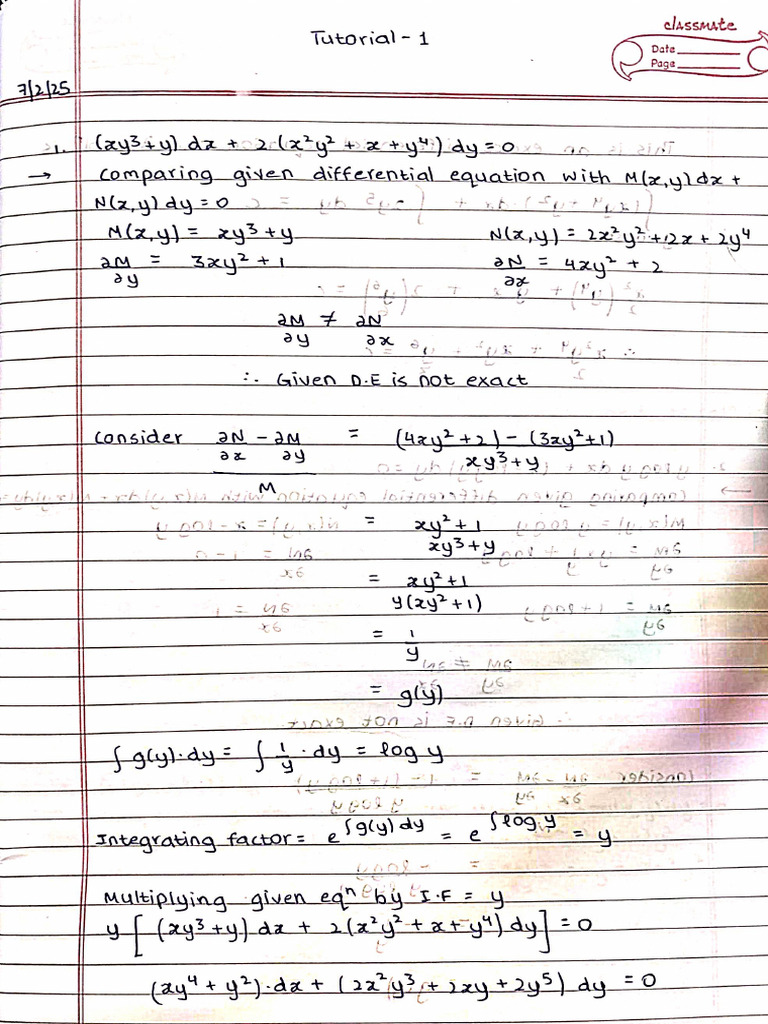 classmate
Tutorial - 1
Date
Page
7/2/25
1. (xy³+y) dx + 2 (x²y² + x + y⁴) dy = 0
→ comparing given differential equation with M(x,y) dx +
N(x,y) dy = 0
M(x,y) = xy³+y N(x,y) = 2x²y² + 2x + 2y⁴
∂M/∂y = 3xy² + 1 ∂N/∂x = 4xy² + 2
∂M/∂y ≠ ∂N/∂x
∴ Given D.E is not exact
consider (∂N/∂x - ∂M/∂y)/M = ((4xy²+2) - (3xy²+1))/(xy³+y)
= (xy²+1)/(xy³+y)
= (xy²+1)/(y(xy²+1))
= 1/y
= g(y)
∫ g(y)·dy = ∫ 1/y · dy = log y
Integrating factor = e^(∫g(y) dy) = e^(∫log y) = y
Multiplying given eqⁿ by I.F = y
y [ (xy³+y) dx + 2(x²y² + x + y⁴) dy ] = 0
(xy⁴ + y²)·dx + (2x²y³ + 2xy + 2y⁵) dy = 0